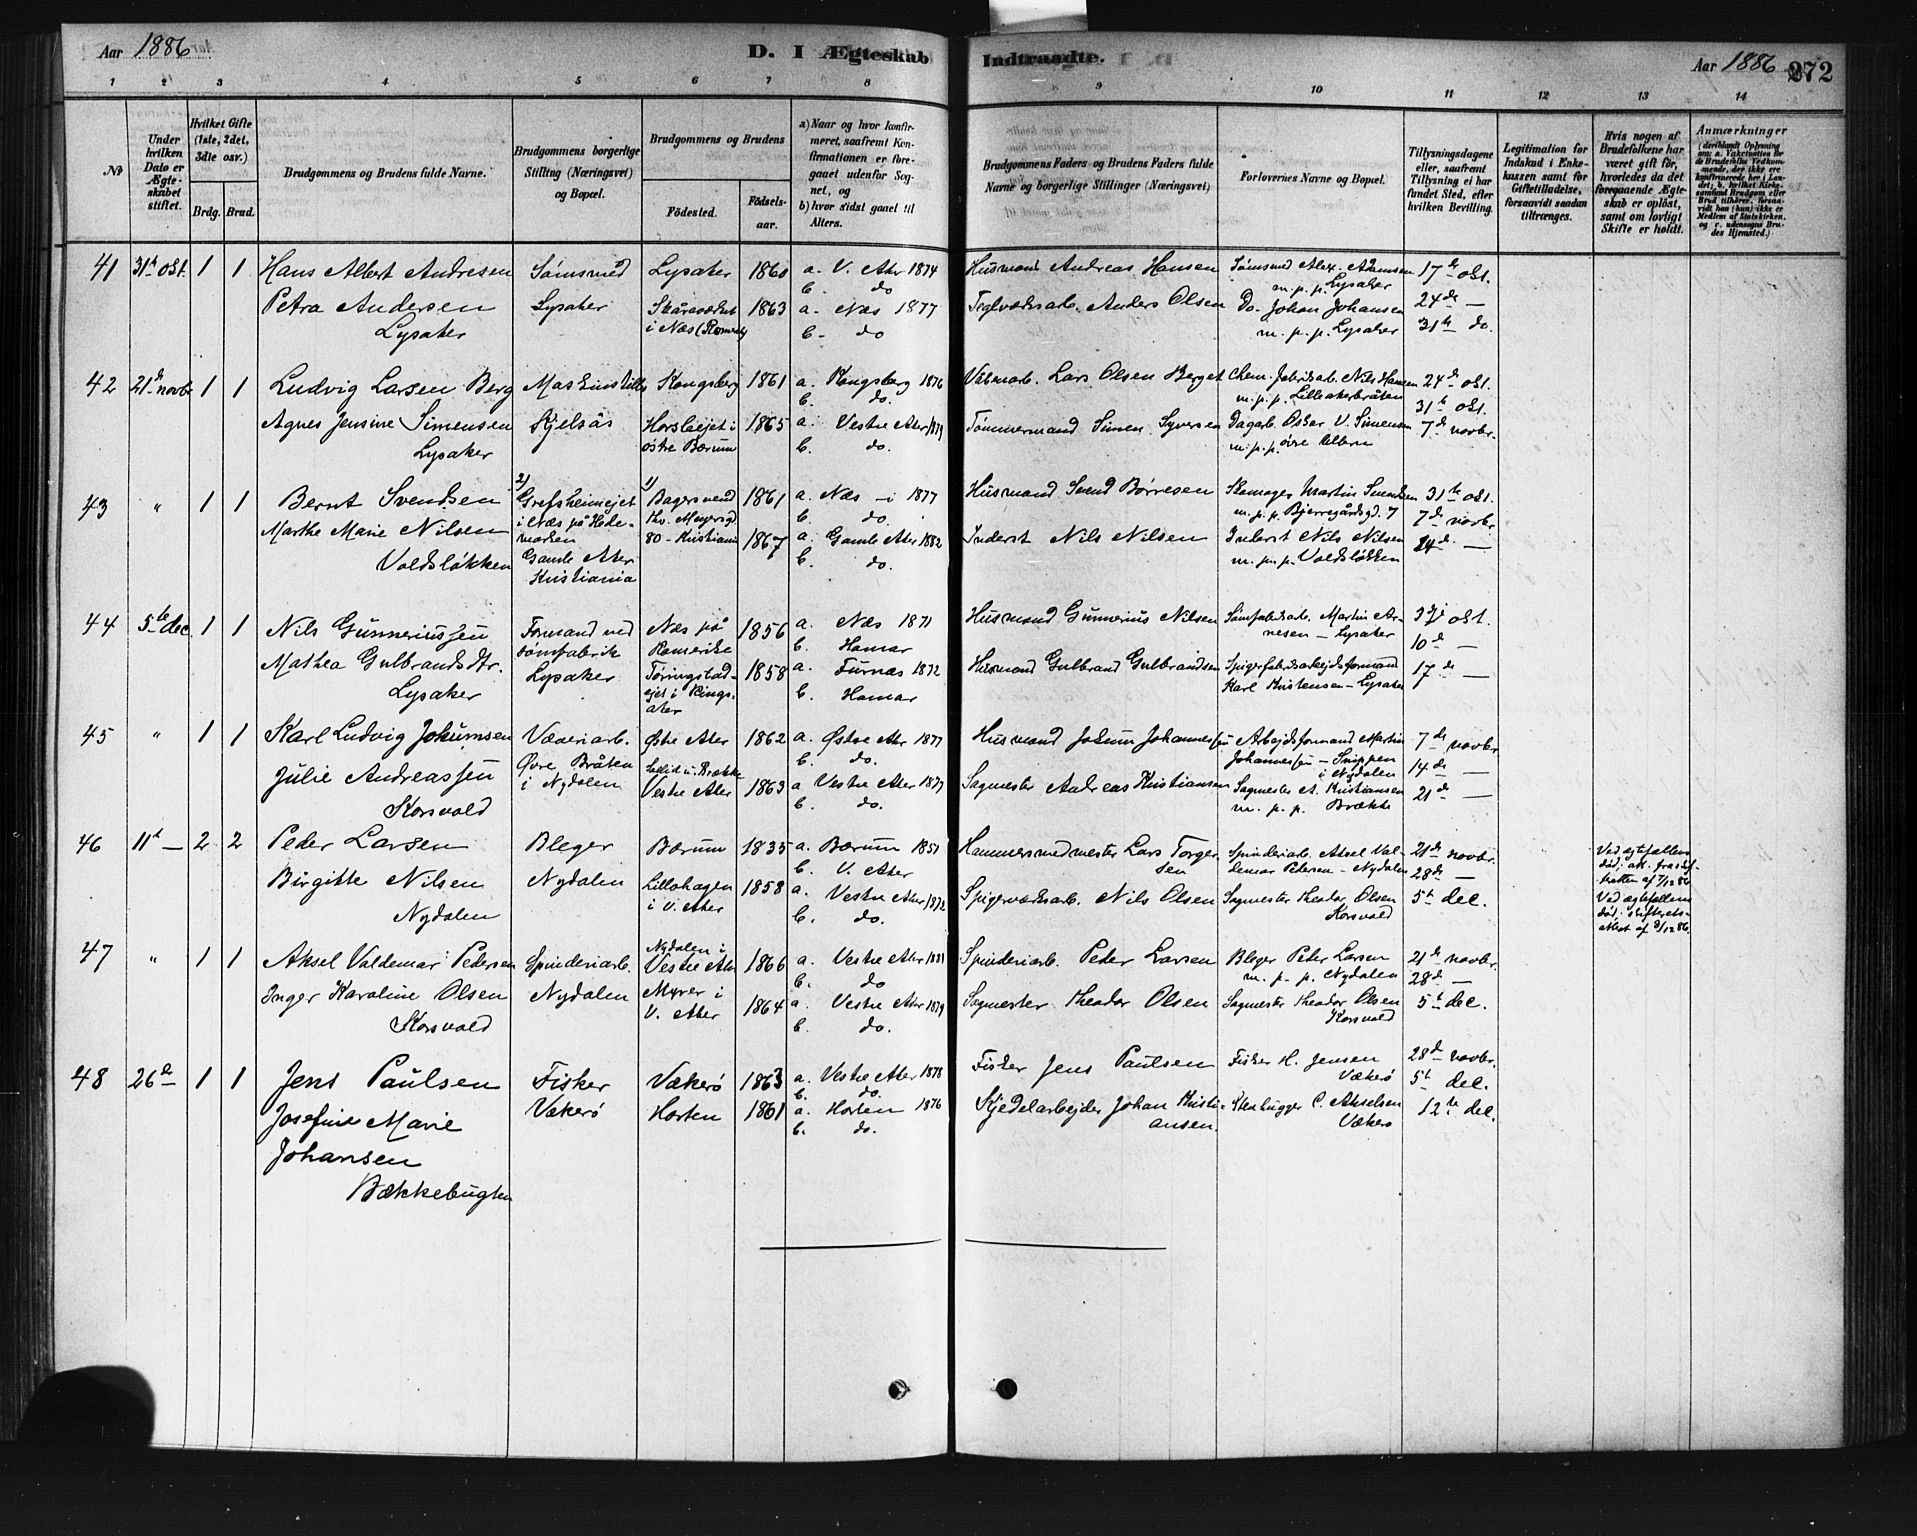 Aar 1886
D. I Ægteskab Indtraadte.
Aar 1886 272
1 2 3 4 5 6 7 8 9 10 11 12 13 14
No
Under hvilken Dato er Ægteskabet stiftet.
Hvilket Gifte (1ste, 2det, 3die osv.)
Brdg. Brud.
Brudgommens og Brudens fulde Navne.
Brudgommens borgerlige Stilling (Næringsvei) og Bopæl.
Brudgommens og Brudens
Födested. Födsels-aar.
a) Naar og hvor konfirmeret, saafremt Konfirmationen er foregaaet udenfor Sognet, og
b) hvor sidst gaaet til Alters.
Brudgommens Faders og Brudens Faders fulde Navne og borgerlige Stillinger (Næringsvei)
Forlovernes Navne og Bopæl.
Tillysningsdagene eller, saafremt Tillysning ei har fundet Sted, efter hvilken Bevilling.
Legitimation for Indskud i Enkekassen samt for Giftetilladelse, forsaavidt saadan tiltrænges.
Hvis nogen af Brudefolkene har været gift för, hvorledes da det foregaaende Ægteskab er oplöst, samt om lovligt Skifte er holdt.
Anmærkninger
41 31te okt. 1 1 Hans Albert Andresen Sömsmed Lysaker 1860 a. V. Aker 1874 Husmand Andreas Hansen Sømsmed Alex. Adamsen 17de okt.
b. do m.p.p. Lysaker
Petra Andersen Lysaker i Næs 1863 a. Næs 1877 Teglværksarb. Anders Olsen Do. Johan Johansen 24de —
Lysaker b. do m.p.p. Lysaker 31te do.
42 21de novbr 1 1 Ludvig Larsen Berg Kongsberg 1861 a. Kongsberg 1876 Våbenarb. Lars Olsen Berget Chem. fabrikarb. Nils Hansen 24de okt.
b. do. m.p.p. Lilleakerbråten 31te okt.
Agnes Jensine Simensen Kjelsås Horslöejet i 1865 a. Vestre Aker 1879 Tømmermand Simen Syversen Dagarb. Oskar V. Simensen 7de novbr.
Lysaker østre Bærum b. do. m.p.p. øvre Ullern
43 " 1 1 Bernt Svendsen 2) Grefsheimejet 1) Bagersvend 1861 a. Næs — i 1877 Husmand Svend Børresen Skomager Martin Svendsen 31te okt.
i Næs på Hedemarken b. do. m.p.p. Bjerregårdsgd. 7 7de novbr
Marthe Marie Nilsen 80 - Kristiania 1867 a. Gamle Aker 1882 Inderst Nils Nilsen Inderst Nils Nilsen 14de —
Voldsløkken Gamle Aker Kristiania b. do. m.p.p. Voldsløkken
44 5te dec. 1 1 Nils Gunneriussen Formand ved Næs på 1856 a. Næs 1871 Husmand Gunnerius Nilsen Sømfabrikarb. Martin Ar- 3die okt.
sömfabrik Romerike b. Hamar nesen — Lysaker 10de —
Mathea Gulbrandsdtr. Lysaker 1858 a. Furnæs 1872 Husmand Gulbrand Gulbrandsen Spigerfabriksarbejdsformand 17de —
Lysaker ejet i Ringsaker b. Hamar Karl Kristensen — Lysaker
45 " 1 1 Karl Ludvig Jokumsen Væveriarb. Østre Aker 1862 a. Østre Aker 1877 Husmand Jokum Johannessen Arbejdsformand Martin 7de novbr
Øvre Bråten b. do. Johannessen — Snippen i Nydalen 14de —
Julie Andreassen i Nydalen Vestre Aker 1863 a Vestre Aker 1877 Sagmester Andreas Kristiansen Sagmester A. Kristiansen 21de —
Korsvold b. do. m.p.p. Brække
46 11te — 2 2 Peder Larsen Bleger Bærum 1835 a. Bærum 1851 Hammersmedmester Lars Torgersen Spinderiarb. Aksel Val- 21de novbr.
b. V. Aker demar Petersen — Nydalen 28de —
Birgitte Nilsen Nydalen Lillohagen 1858 a. Vestre Aker 1872 Spigerværksarb. Nils Olsen Sagmester Theodor Olsen 5te dec.
Nydalen i V. Aker b. do. Korsvold
Ved ægtefællens død; af 7/12 86
Ved ægtefællens død; skifterets- attest af 3/12 86.
47 " 1 1 Aksel Valdemar Pedersen Spinderiarb. Nydalen i Vestre Aker 1866 a. Vestre Aker 1881 Spinderiarb. Peder Larsen Bleger Peter Larsen 21de novbr.
b. do m.p.p. Nydalen 28de —
Inger Karoline Olsen Nydalen Myrer i 1864 a. Vestre Aker 1879 Sagmester Theodor Olsen Sagmester Theodor Olsen 5te dec.
Korsvold V. Aker b. do. Korsvold
48 26de — 1 1 Jens Paulsen Fisker Vækerø 1863 a. Vestre Aker 1878 Fisker Jens Paulsen Fisker H. Jensen 28de novbr.
b. do. Vækerø 5te dec.
Josefine Marie Vækerø Horten 1861 a. Horten 1876 Kjedelarbejder Johan Kristiansen. Stenhugger C. Akselsen 12te dec.
Johansen b. do. Vækerø
Bækkebugten